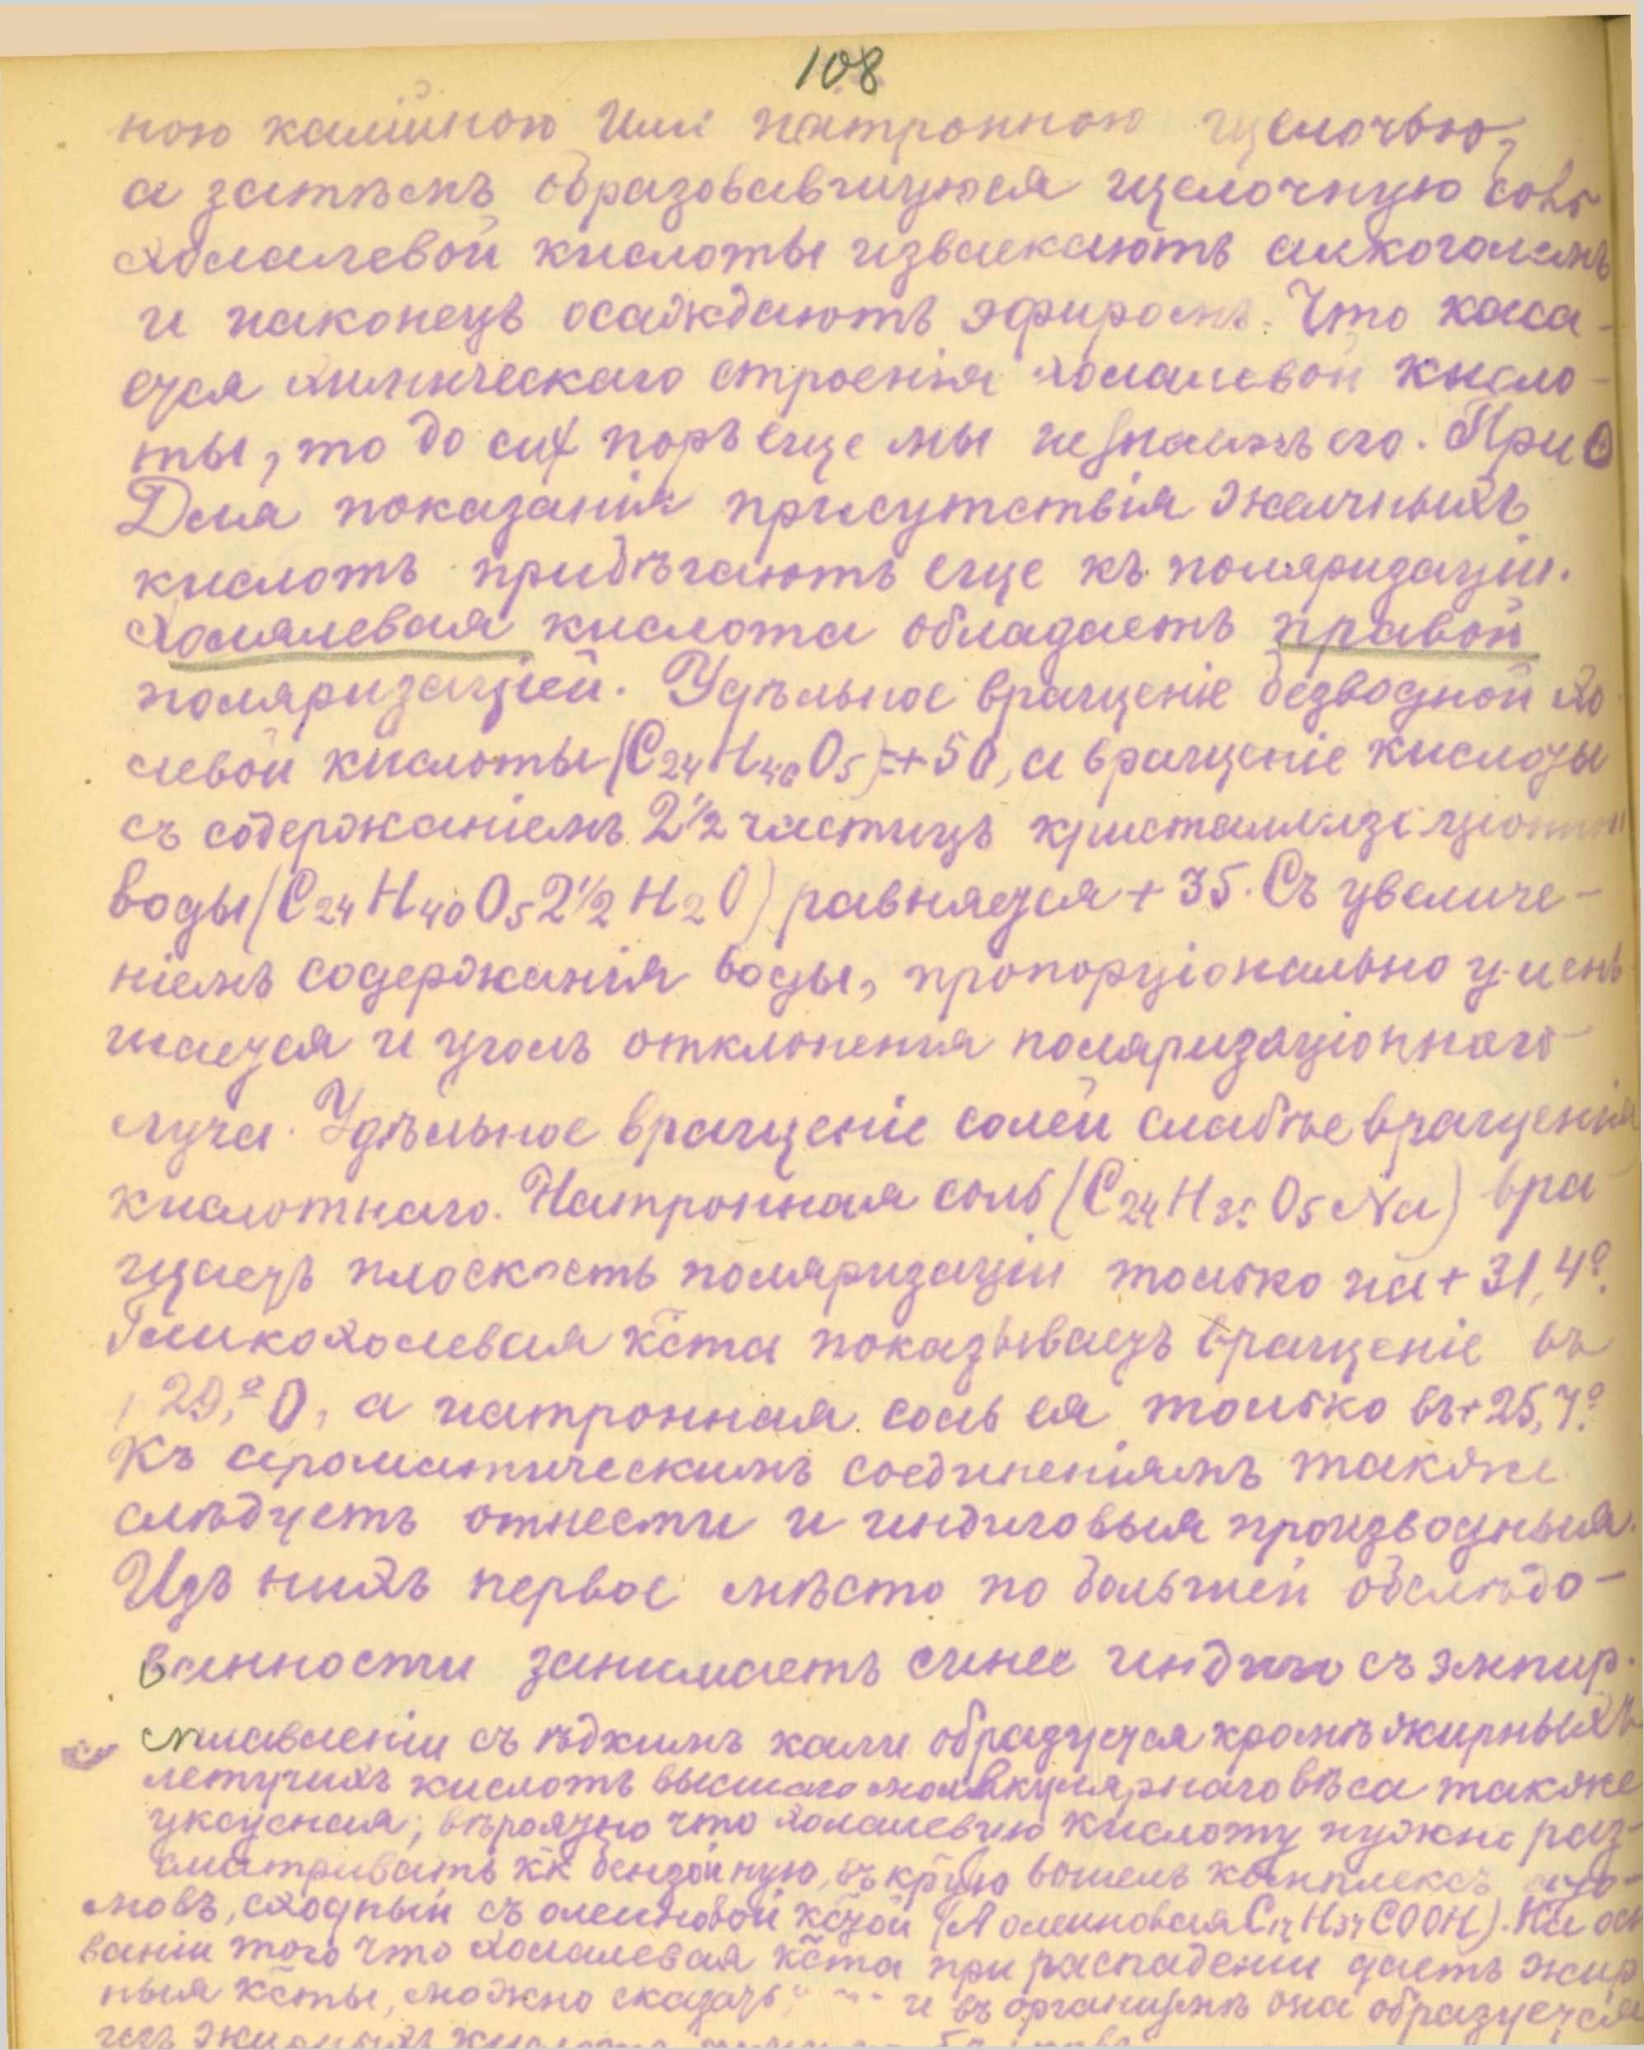 108
ною калійною или натронною щелочью,
а затѣмъ образовавшуюся щелочную соль
холалевой кислоты извлекаютъ алкоголемъ
и наконецъ осаждаютъ эфиромъ. Что каса-
ется химическаго строенія холалевой кисло-
ты, то до сих поръ еще мы не знаемъ его. При
Для показанія присутствія желчныхъ
кислотъ прибѣгаютъ еще къ поляризаціи.
Холалевая кислота обладаетъ правой
поляризаціей. Удѣльное вращеніе безводной хо
левой кислоты (C24H40O5)=+50, а вращеніе кислоты
съ содержаніемъ 2½ частицъ кристаллизаціонн
воды (C24H40O5 2½ H2O) равняется +35. Съ увеличе-
ніемъ содержанія воды, пропорціонально умень
шается и уголъ отклоненія поляризаціоннаго
луча. Удѣльное вращеніе солей слабѣе вращенія
кислотнаго. Натронная соль (C24H39O5Na) вра
щаетъ плоскость поляризаціи только на +31,4°.
Гликохолевая кста показываетъ вращеніе въ
+29,°0, а натронная соль ея только въ +25,7°.
Къ ароматическимъ соединеніямъ также
слѣдуетъ отнести и индиговыя производныя.
Изъ нихъ первое мѣсто по большей обслѣдо-
ванности занимаетъ синее индиго съ эмпир.
сплавленіи съ ѣдкимъ кали образуется кромѣ жирныхъ
летучихъ кислотъ высшаго молекулярнаго вѣса также
уксусная; вѣроятно что холалевую кислоту нужно раз-
сматривать кк бензойную, въ крую вошелъ комплексъ ато-
мовъ, сходный съ олеиновой кстой (А олеиновая C17H37COOH). На осн
ваніи того что холалевая кста при распаденіи даетъ жир
ныя ксты, можно сказать и въ организмѣ она образуется
изъ жирныхъ